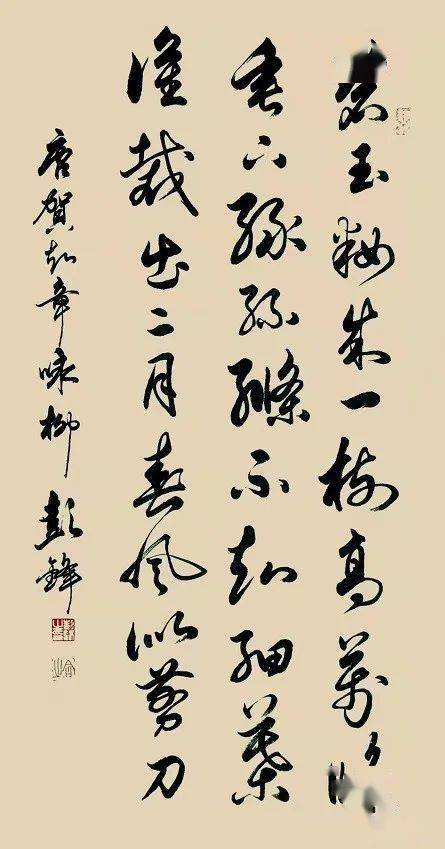 碧玉粧成一樹高萬條
垂下綠絲絛不知細葉
誰裁出二月春風似剪刀
唐賀知章咏柳 彭鋒